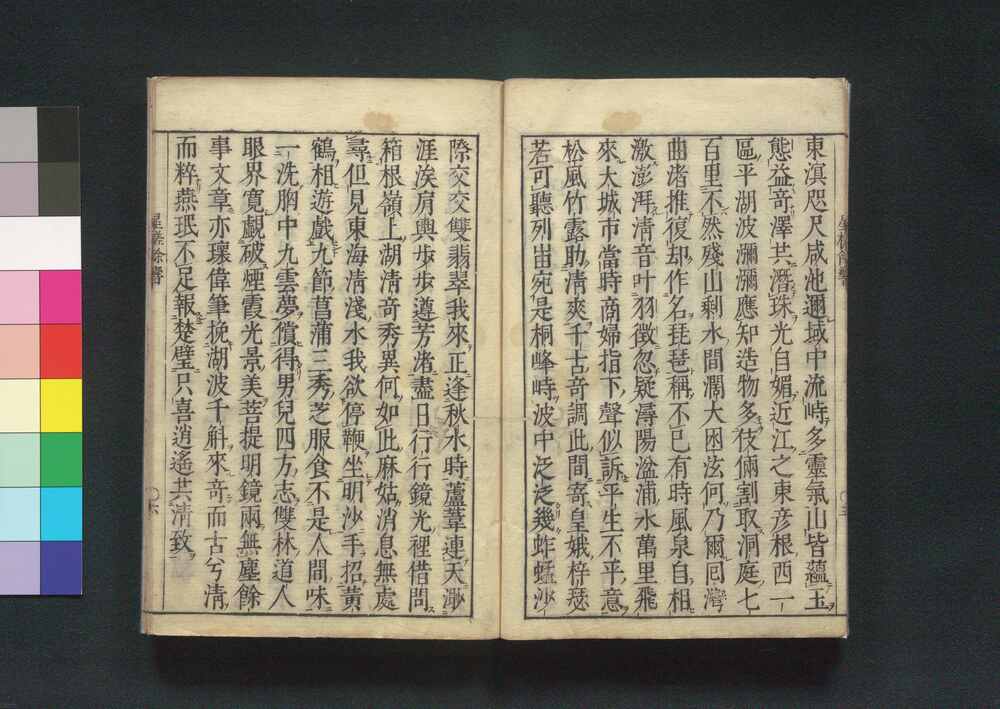 東溟咫尺咸池邇域中流峙多靈氣山皆蘊玉
態益奇澤共潛珠光自媚近江之東彦根西一
區平湖波瀰瀰應知造物多伎倆割取洞庭七
百里不然殘山剩水間濶大困泫何乃爾囘灣
曲渚推復却作名琵琶稱不已有時風泉自相
激澎湃清音叶羽徴忽疑潯陽湓浦水萬里飛
來大城市當時商婦指下聲似訴平生不平意
松風竹露助清爽千古奇調此間寄皇娥梓瑟
若可聽列岫宛是桐峰峙波中泛泛幾蚱蜢沙
際交交雙翡翠我來正逢秋水時蘆葦連天渺
涯涘肩輿歩歩遵芳渚盡日行行鏡光裡借問
箱根嶺上湖清奇秀異何如此麻姑消息無處
尋但見東海清淺水我欲停鞭坐明沙手招黄
鶴相遊戯九節菖蒲三秀芝服食不是人間味
一洗胸中九雲夢償得男兒四方志雙林道人
眼界寛覷破煙霞光景美菩提明鏡兩無塵餘
事文章亦瓌偉筆挽湖波千斛來奇而古兮清
而粹燕珉不足報楚璧只喜逍遙共清致